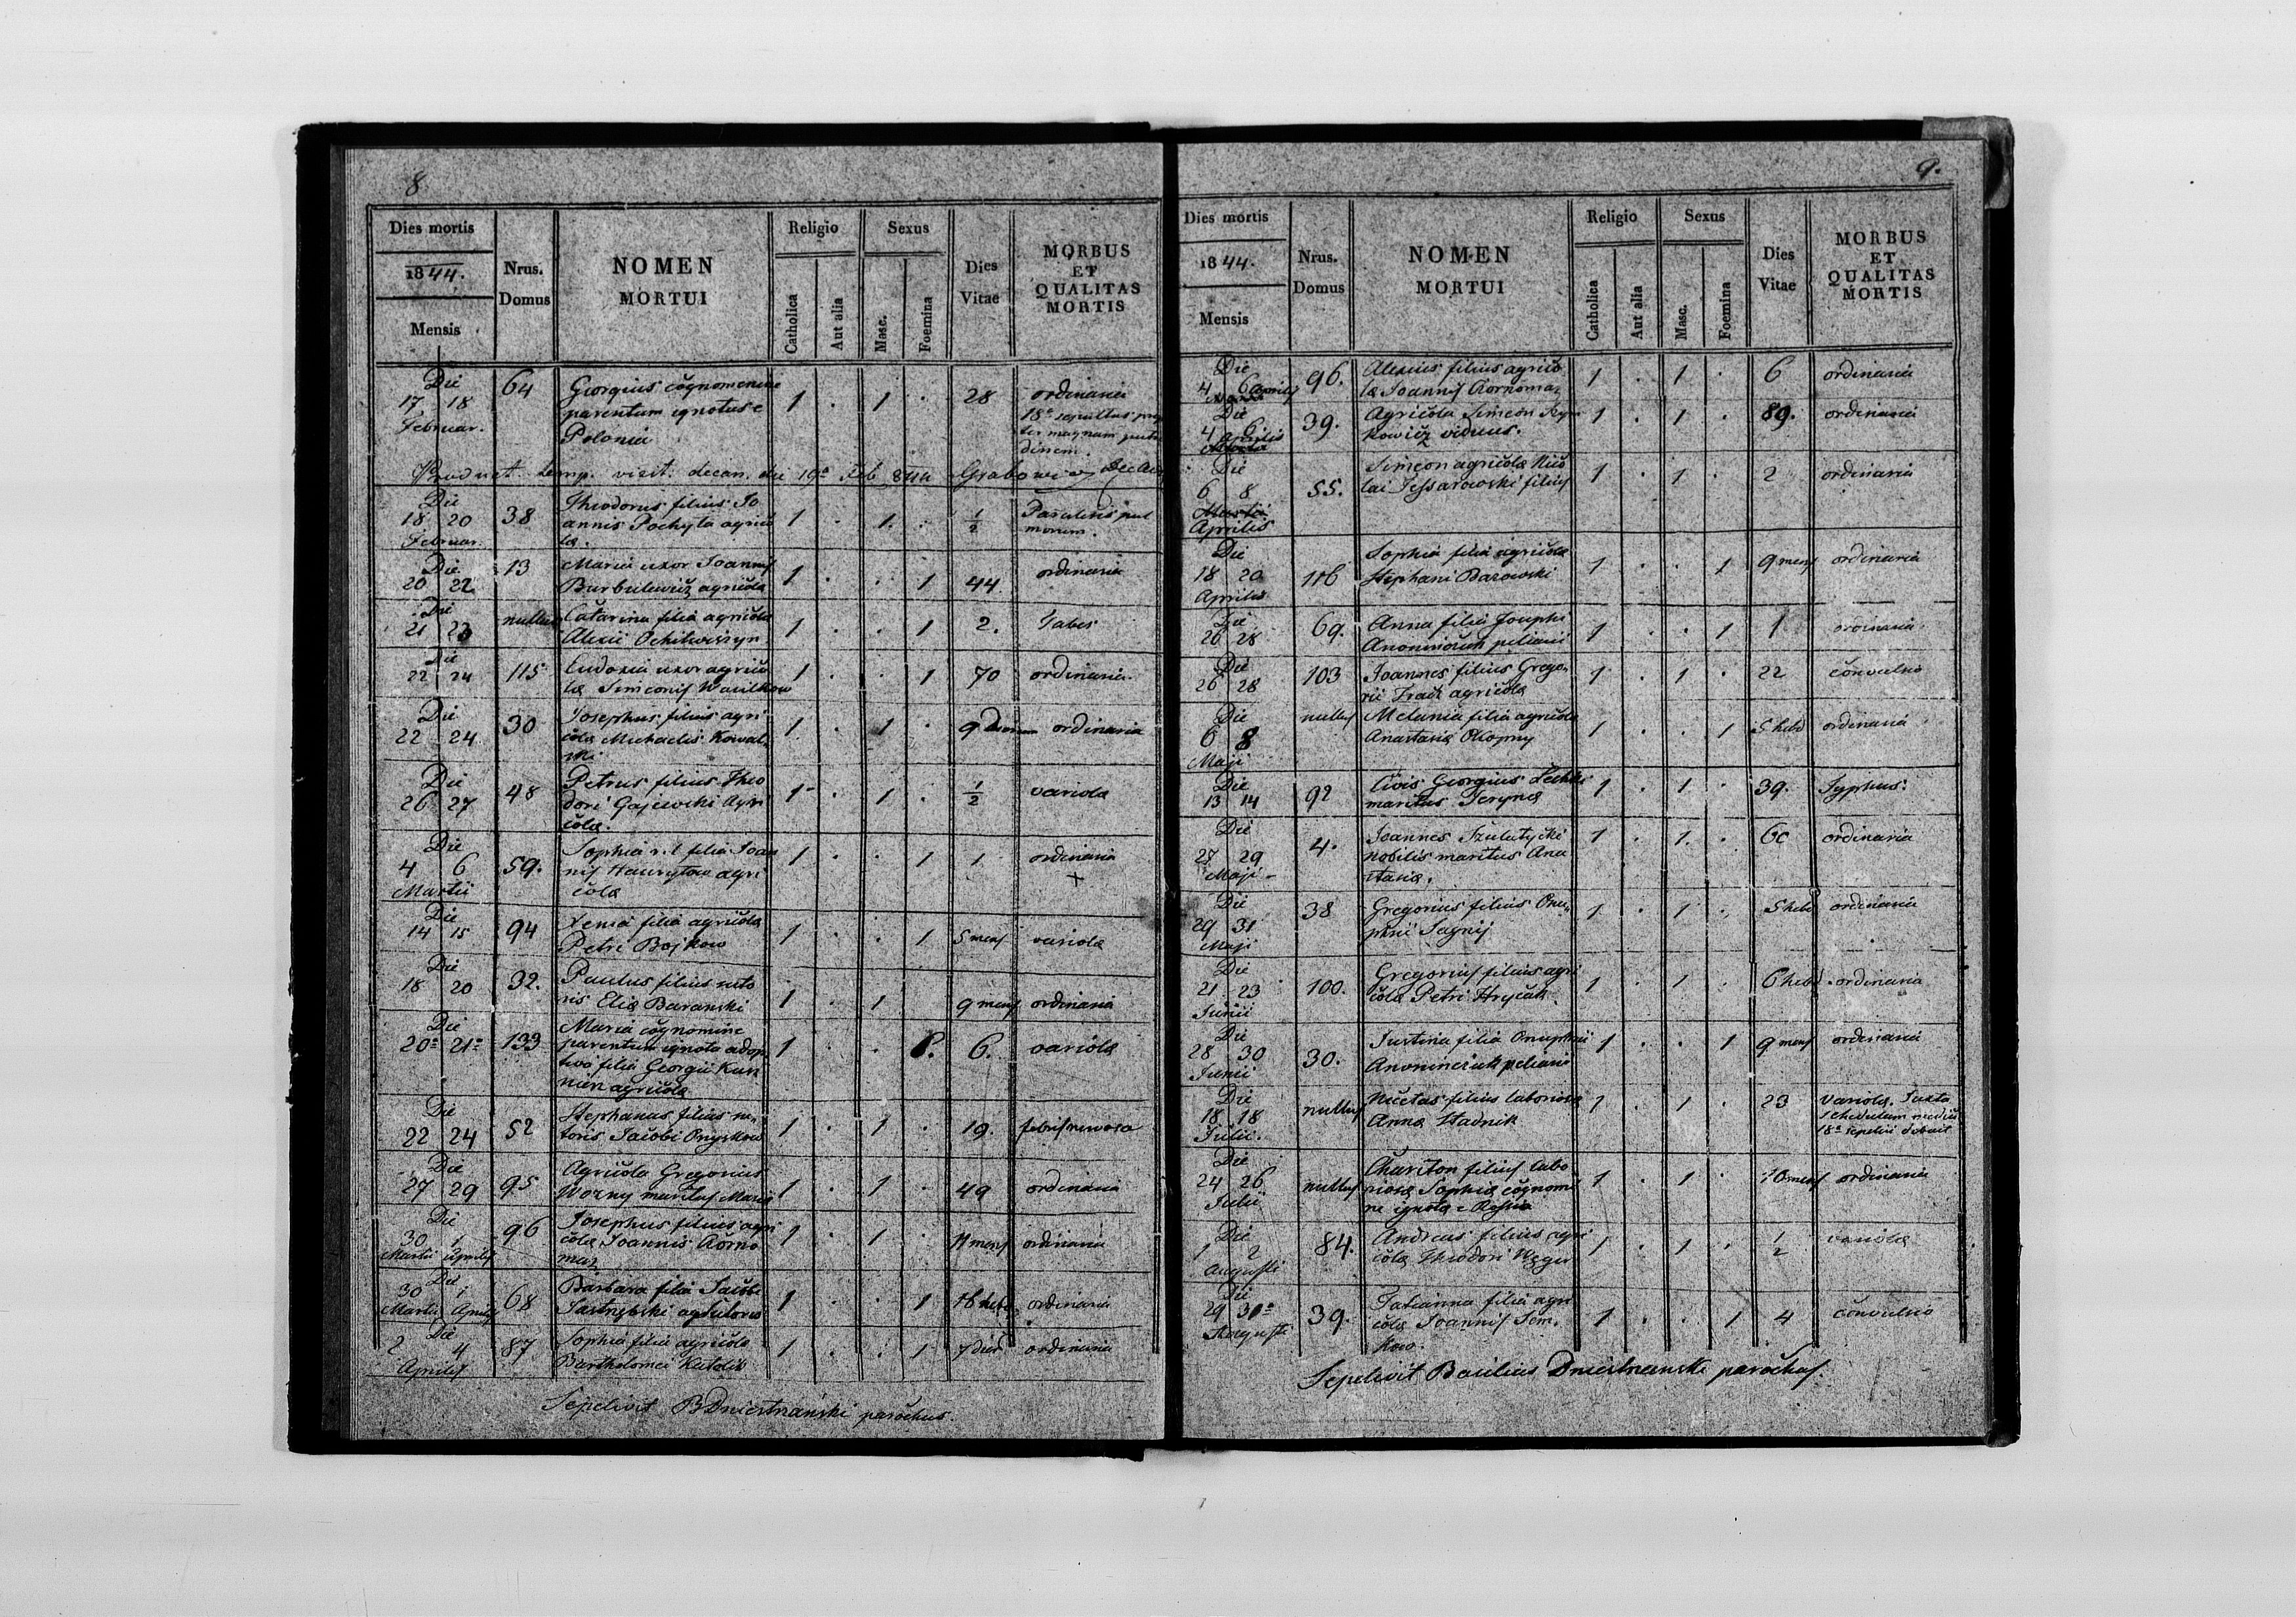 8
Dies mortis
1844.
Mensis
Nrus.
Domus
NOMEN
MORTUI
Religio
Catholica
Aut alia
Sexus
Masc.
Foemina
Dies
Vitae
MORBUS
ET
QUALITAS
MORTIS
Die 64 Georgius cognomenine ordinaria
17 18 parentum ignotus e 1 . 1 . 28 18a sepultus prop
Februar. Polonia ter magnam putre
dinem.
Product. temp. visit. decan. die 19a Feb 844 Grabowicz
Die Theodorus filius Jo
18 20 38 annis Pochyla agrico 1 . 1 . 1/2 Paralisis pul
Februar. la. monum.
Die 13 Maria uxor Joannis ordinaria
20 22 Burbulewicz agricola 1 . . 1 44
Die nullus Catarina filia agricola
21 23 Alexii 1 . . 1 2. Tabes
Die 115 Eudoxia uxor agrico
22 24 la Simeonis Wasilkow 1 . . 1 70 ordinaria
Die 30 Josephus filius agri
22 24 cola Michaelis Kowal 1 . 1 . 9 dierum ordinaria
ski
Die 48 Petrus filius Theo
26 27 dori Gajewski Agri 1 . 1 . 1/2 variola
cola.
Die Sophia r. l. filia Joan
4 6 59. nis agri 1 . . 1 1 ordinaria
Martii cola +
Die 94 Xenia filia agricola
14 15 Petri Bojkow 1 . . 1 5 mens variola
Die 32. Paulus filius suto
18 20 ris Elia Baranski 1 . 1 9 mens ordinaria
Die 133 Maria cognomine
20a 21a parentum ignota adop 1 . . 1. 6. variola
tiva filia Georgii
agricola
Die 52 Stephanus filius su
22 24 toris Jacobi Onyskow 1 . 1 . 19. febris nervosa
Die 95 Agricola Gregorius
27 29 Worny maritus Maria 1 . 1 . 49 ordinaria
Die 96 Josephus filius agri
30 1 cola Joannis Korno 1 . 1 . 11 mens ordinaria
Martii Aprilis maz
Die 68 Barbara filia Jacobi
30 1 Jastrzębski 1 . . 1 16 hebd. ordinaria
Martii Aprilis
Die 87 Sophia filia agricola
2 4 Bartholomei Kutolik 1 . . 1 7 dier ordinaria
Aprilis
Sepelivit BDniestrzański parochus.
9.
Dies mortis
1844.
Mensis
Nrus.
Domus
NOMEN
MORTUI
Religio
Catholica
Aut alia
Sexus
Masc.
Foemina
Dies
Vitae
MORBUS
ET
QUALITAS
MORTIS
Die 96. Alexius filius agrico 1 . 1 . 6 ordinaria
4 6 Aprilis la Joannis Kornomaz
Die 39. Agricola Simeon 1 . 1 . 89. ordinaria
4 6 Aprilis kowicz viduus.
Die 55. Simeon agricola Nico 1 . 1 . 2 ordinaria
6 8 lai Jessarowski filius
Martii
Aprilis
Die Sophia filia agricola
18 20 116 Stephani Barowski 1 . . 1 9 mens ordinaria
Aprilis
Die 69. Anna filia Josephi
26 28 1 . . 1 1 ordinaria
Die 103 Joannes filius Grego
26 28 rii agricola 1 . 1 . 22 convulsio
Die nullus Melania filia agricola
6 8 Anastasia Okopny 1 . . 1 5 hebd ordinaria
Maji
Die 92 Civis Georgius
13 14 maritus Iryna 1 . 1 . 39. Typhus.
Die 4. Joannes
27 29 nobilis maritus Ana 1 . 1. . 60 ordinaria
Maji stasia.
Die 38 Gregorius filius Onu
29 31 phrii Sagnij 1 . 1 . 5 hebd ordinaria
Maji
Die 100. Gregorius filius agri
21 23 cola Petri Hrycak 1 . 1 . 6 hebd. ordinaria
Junii
Die 30. Justina filia Onuphrii
28 30 1 . . 1 9 mens ordinaria
Junii
Die nullus Nicetas filius laboriosa 1 . 1 . 23 variola. Juxta
18 18 Anna Stadnik schedulam medici
Julii. 18a sepeliri debuit
Die nullus Chariton filius labo
24 26 riosa Sophia cognomi 1 . 1 . 10 mens ordinaria
Julii ne ignota e Russia
Die 84. Andreas filius agri
1 2 cola Theodori 1 . 1 . 1/2 variola
Augusti
Die 39. Tatianna filia agri
29 30a cola Joannis Sem 1 . . 1 4 convulsio
Augusti kow.
Sepelivit Basilius Dniestrzanski parochus.